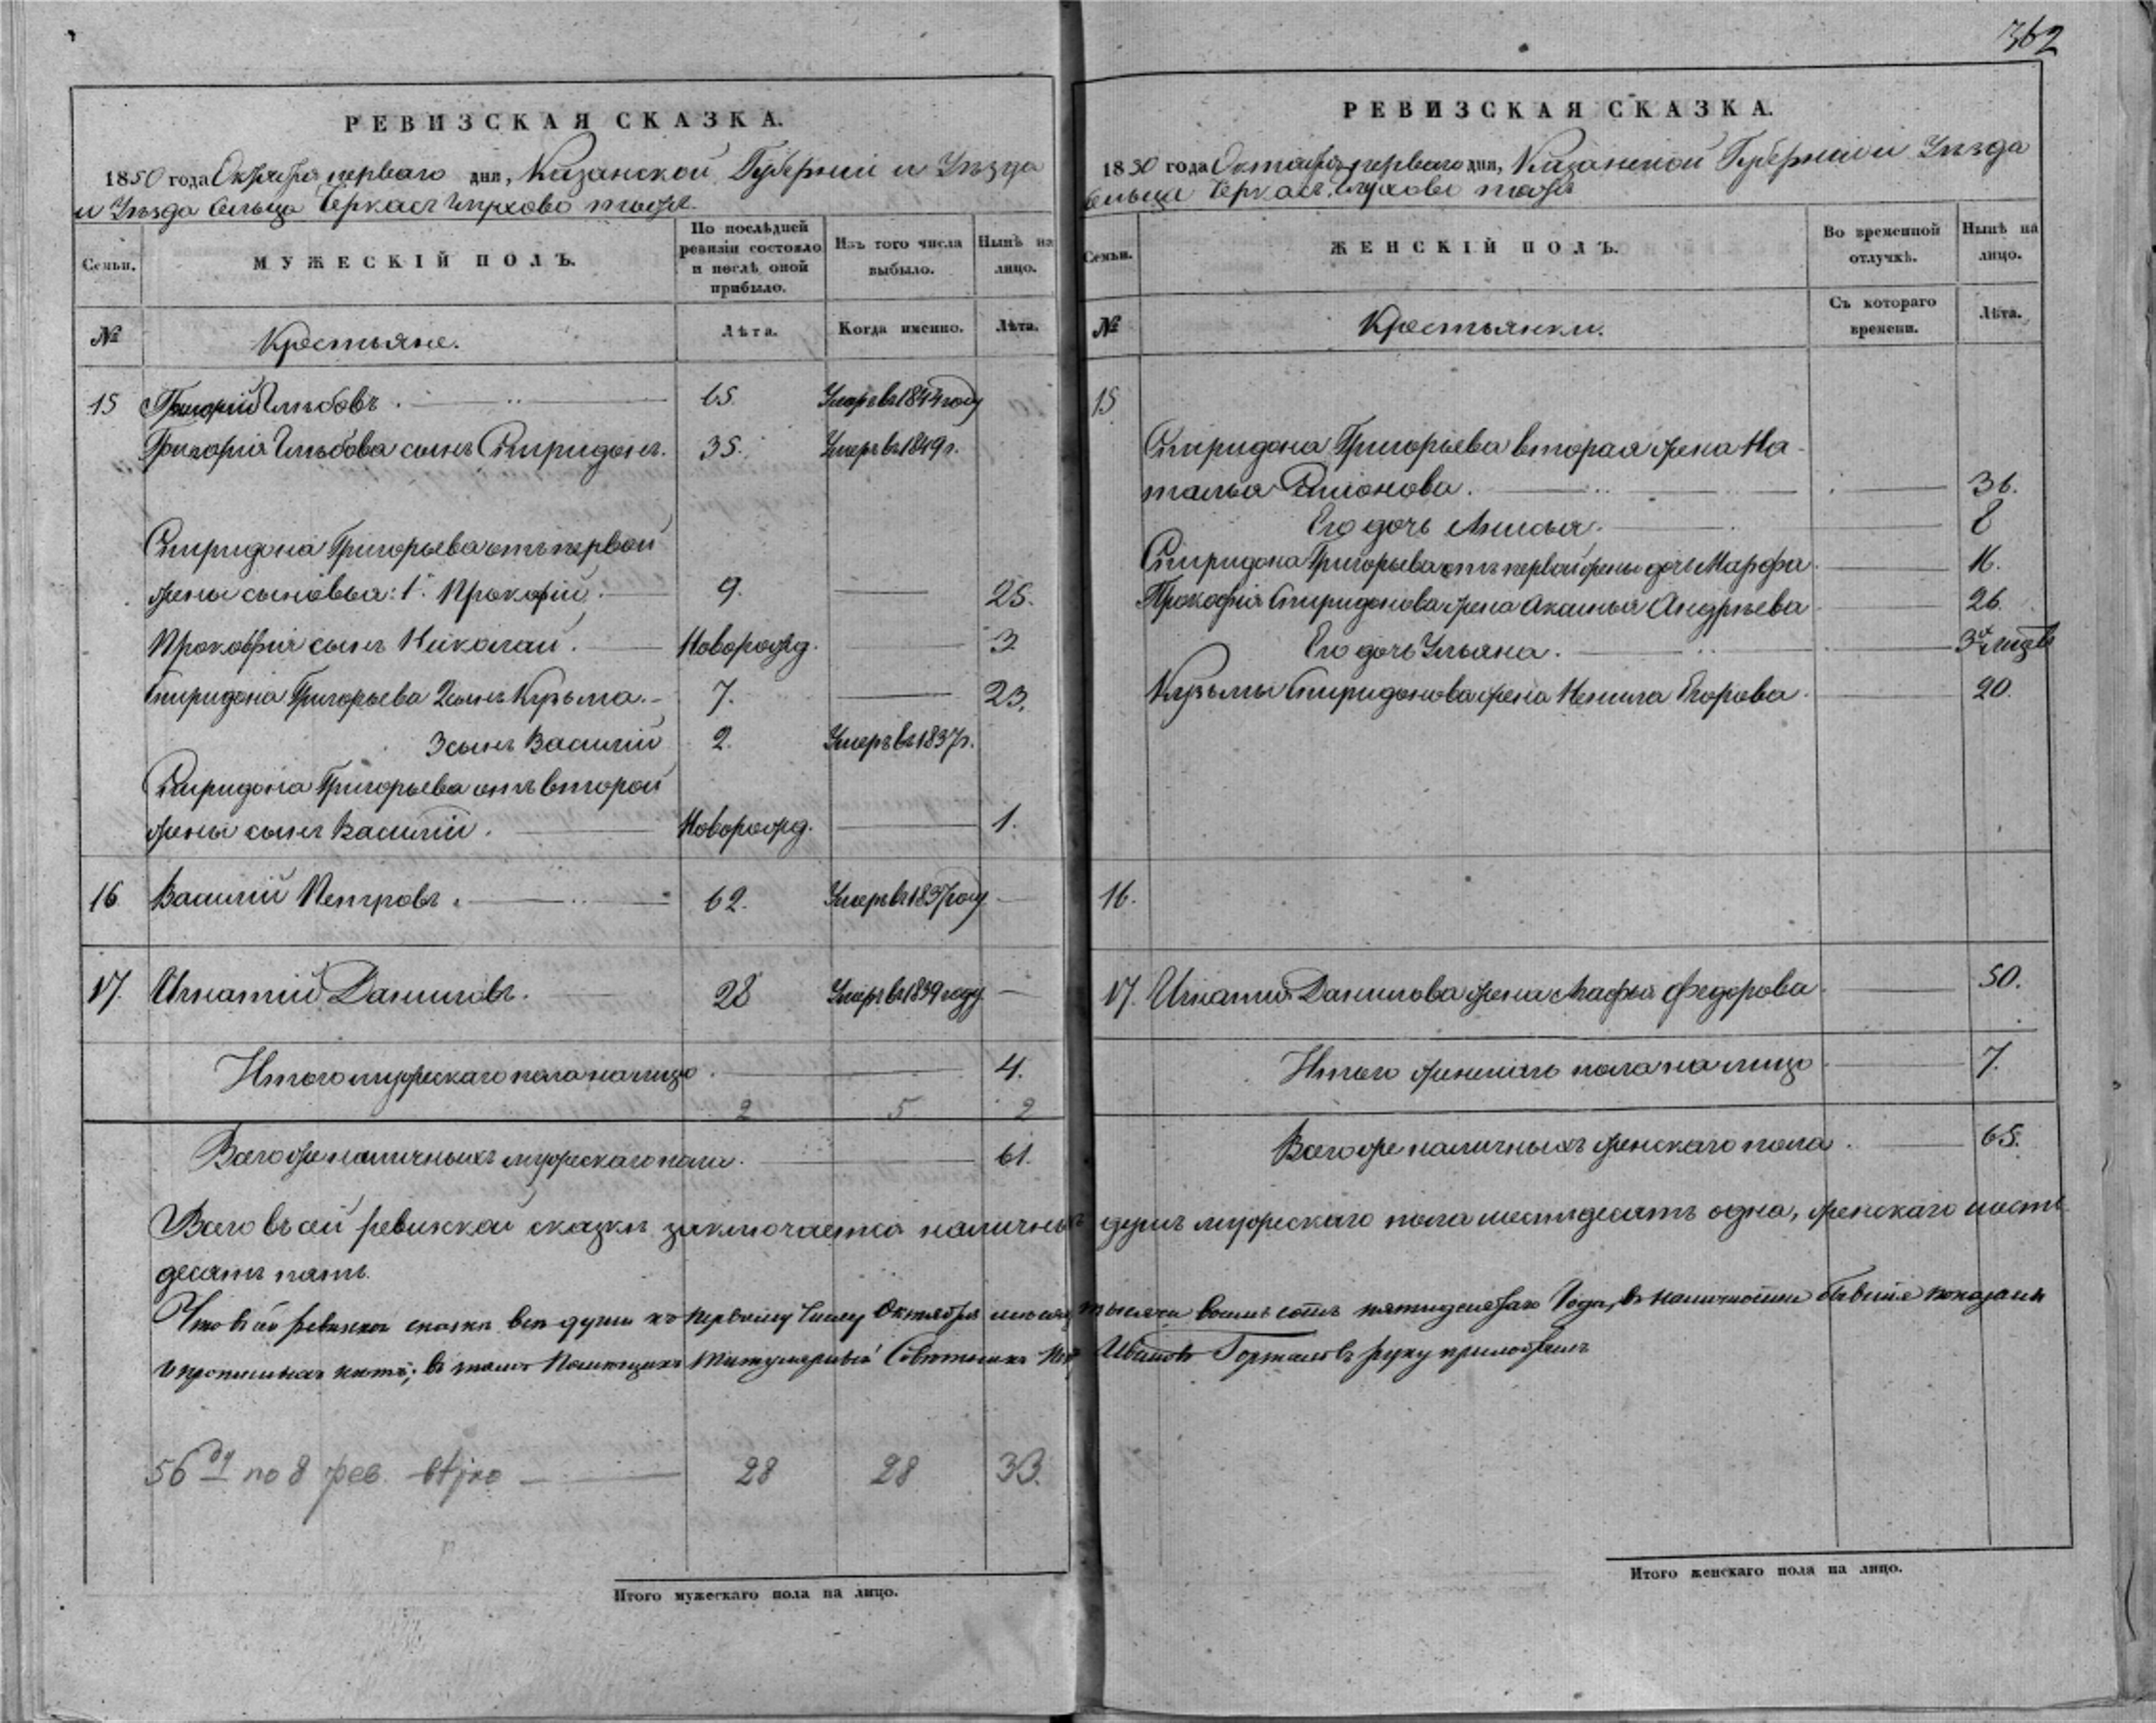 362
РЕВИЗСКАЯ СКАЗКА.
1850 года Октября перваго дня, Казанской Губернии и Уѣзда
и Уѣзда сельца Черкасъ тожъ.
Семьи.
МУЖЕСКІЙ ПОЛЪ.
По послѣдней ревизіи состояло и послѣ оной прибыло.
Изъ того числа выбыло.
Нынѣ на лицо.
№
Крестьяне.
Лѣта.
Когда именно.
Лѣта.
15 Григорій Глѣбовъ. 65. Умеръ въ 1844 году
Григорія Глѣбова сынъ Спиридонъ. 35. Умеръ въ 1849 г.
Спиридона Григорьева отъ первой
жены сыновья: 1. Прокофій. 9. 25.
Прокофія сынъ Николай. Новорожд. 3
Спиридона Григорьева 2 сынъ Кузьма. 7. 23.
3 сынъ Василій 2. Умеръ въ 1837 г.
Спиридона Григорьева отъ второй
жены сынъ Василій. Новорожд. 1.
16 Василій Петровъ. 62. Умеръ въ 1837 году
17. Игнатій Даниловъ. 28 Умеръ въ 1839 году
Итого мужескаго пола на лицо. 4.
2 5 2
Всего же наличныхъ мужескаго пола. 61.
РЕВИЗСКАЯ СКАЗКА.
1850 года Октября перваго дня, Казанской Губерніи и Уѣзда
сельца Черкасъ тожъ
Семьи.
ЖЕНСКІЙ ПОЛЪ.
Во временной отлучкѣ.
Нынѣ на лицо.
№
Крестьянки.
Съ котораго времени.
Лѣта.
15
Спиридона Григорьева вторая жена На-
талья 36.
Его дочь Анисья. 8
Спиридона Григорьева отъ первой жены дочь Марфа 16.
Прокофія Спиридонова жена Акилина Андрѣева 26.
Его дочь Ульяна. 3х
Кузьмы Спиридонова жена Ненила Егорова 20.
16.
17. Игнатія Данилова жена Марфа Федорова 50.
Итого женскаго пола на лицо 7.
Всего же наличныхъ женскаго пола 65.
Всего въ сей ревизской сказкѣ заключается наличныхъ душъ мужескаго пола шестьдесятъ одна, женскаго шесть
десятъ пять.
Что въ сей ревизской сказкѣ всѣ души къ первому числу Октября тысяча восемь сотъ пятидесятаго Года, въ наличности бывшіе показаны
и прописныхъ нѣтъ; въ томъ Помещикъ Титулярный Совѣтникъ Ивановъ Горталовъ руку приложилъ
56 по 8 рев. 28 28 33.
Итого мужескаго пола на лицо.
Итого женскаго пола на лицо.